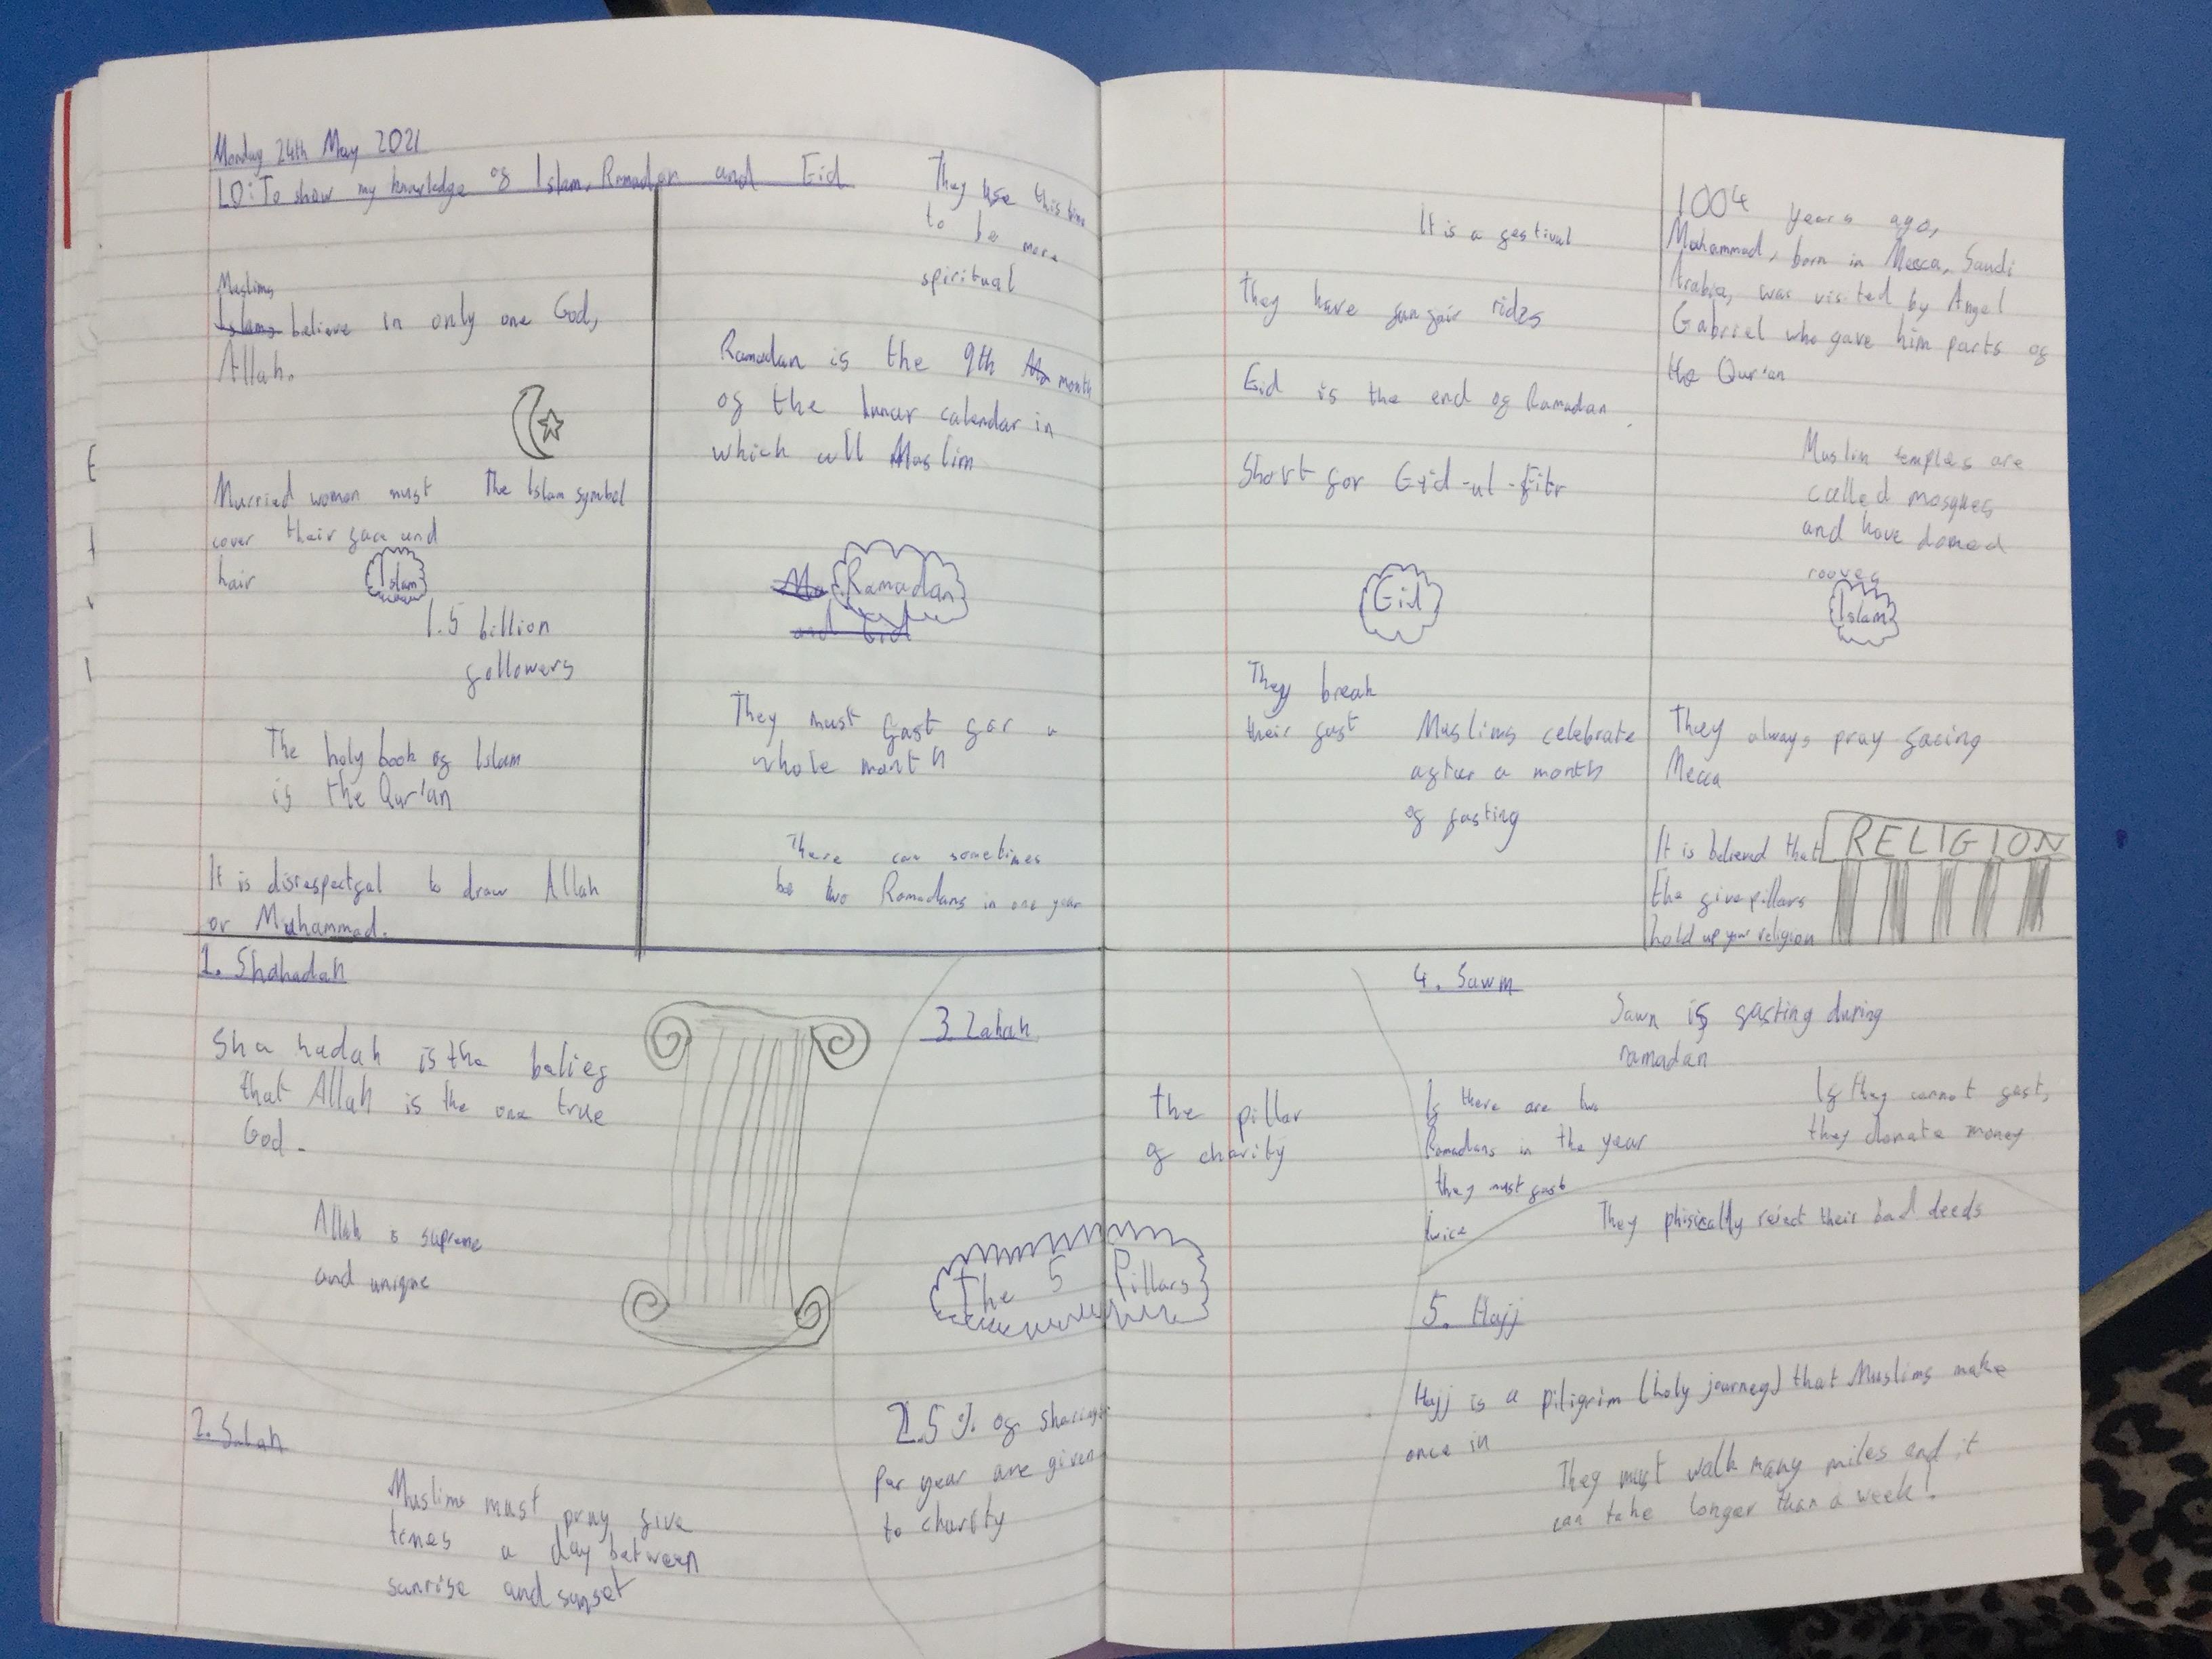 Monday 24th May 2021
LO: To show my knowledge of Islam, Ramadan and Eid
Muslims
Islams believe in only one God,
Allah.
The Islam symbol
Married woman must
cover their face and
hair
Islam
1.5 billion
followers
The holy book of Islam
is the Qur'an
It is disrespectful to draw Allah
or Muhammad.
They use this time
to be more
spiritual
Ramadan is the 9th month
of the lunar calendar in
which all Muslim
Ramadan
and Eid
They must fast for a
whole month
There can sometimes
be two Ramadans in one year
It is a festival
They have funfair rides
Eid is the end of Ramadan
Short for Eid-ul-fitr
Eid
They break
their fast
Muslims celebrate
after a month
of fasting
1004 years ago,
Mohammad, born in Mecca, Saudi
Arabia, was visited by Angel
Gabriel who gave him parts of
the Qur'an
Muslim temples are
called mosques
and have domed
rooves
Islam
They always pray facing
Mecca
It is believed that
the five pillars
hold up your religion
RELIGION
1. Shahadah
Shahadah is the belief
that Allah is the one true
God.
Allah is supreme
and unique
2. Salah
Muslims must pray five
times a day between
sunrise and sunset
3. Zakah
the pillar
of charity
The 5 Pillars
2.5 % of
per year are given
to charity
4. Sawm
Sawn is fasting during
ramadan
If there are two
Ramadans in the year
they must fast
twice
If they cannot fast,
they donate money
They phisically reject their bad deeds
5. Hajj
Hajj is a piligrim (holy journey) that Muslims make
once in
They must walk many miles and it
can take longer than a week!